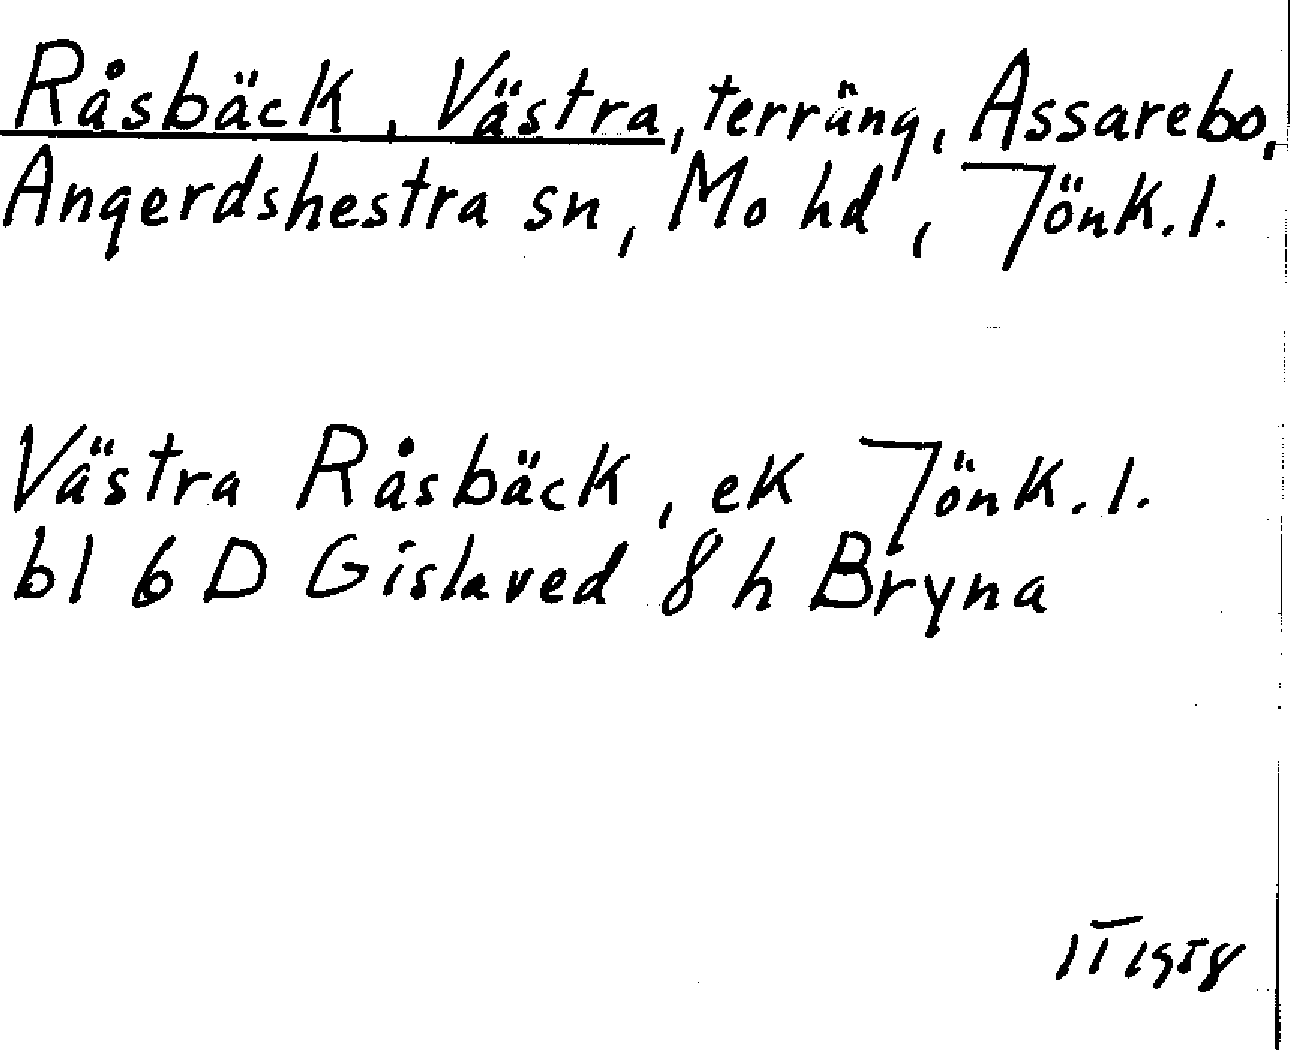 Råsbäck, Västra, terräng, Assarebo,
Angerdshestra sn, Mo hd, Jönk.l.
Västra Råsbäck, ek Jönk.l.
bl 6 D Gislaved 8 h Bryna
1958